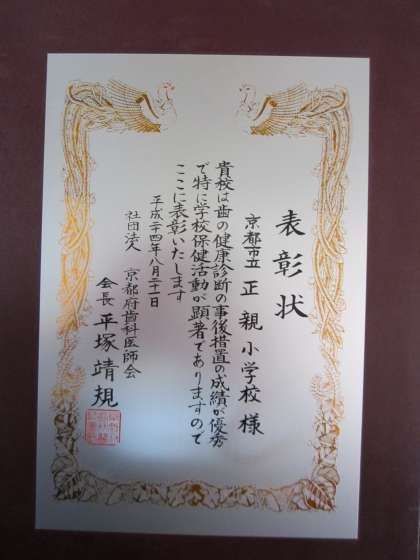 表彰状
京都市立 正親小学校 様
貴校は歯の健康診断の事後措置の成績が優秀
で特に学校保健活動が顕著でありますので
ここに表彰いたします
平成二十四年八月二十一日
社団法人 京都府歯科医師会
会長 平塚靖規